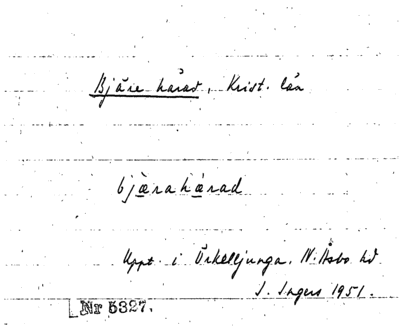 Bjäre härad, Krist. län
bjärahärad
Uppt. i Örkelljunga. N. Åsbo hd.
I. Ingers 1951.
Nr 5327.